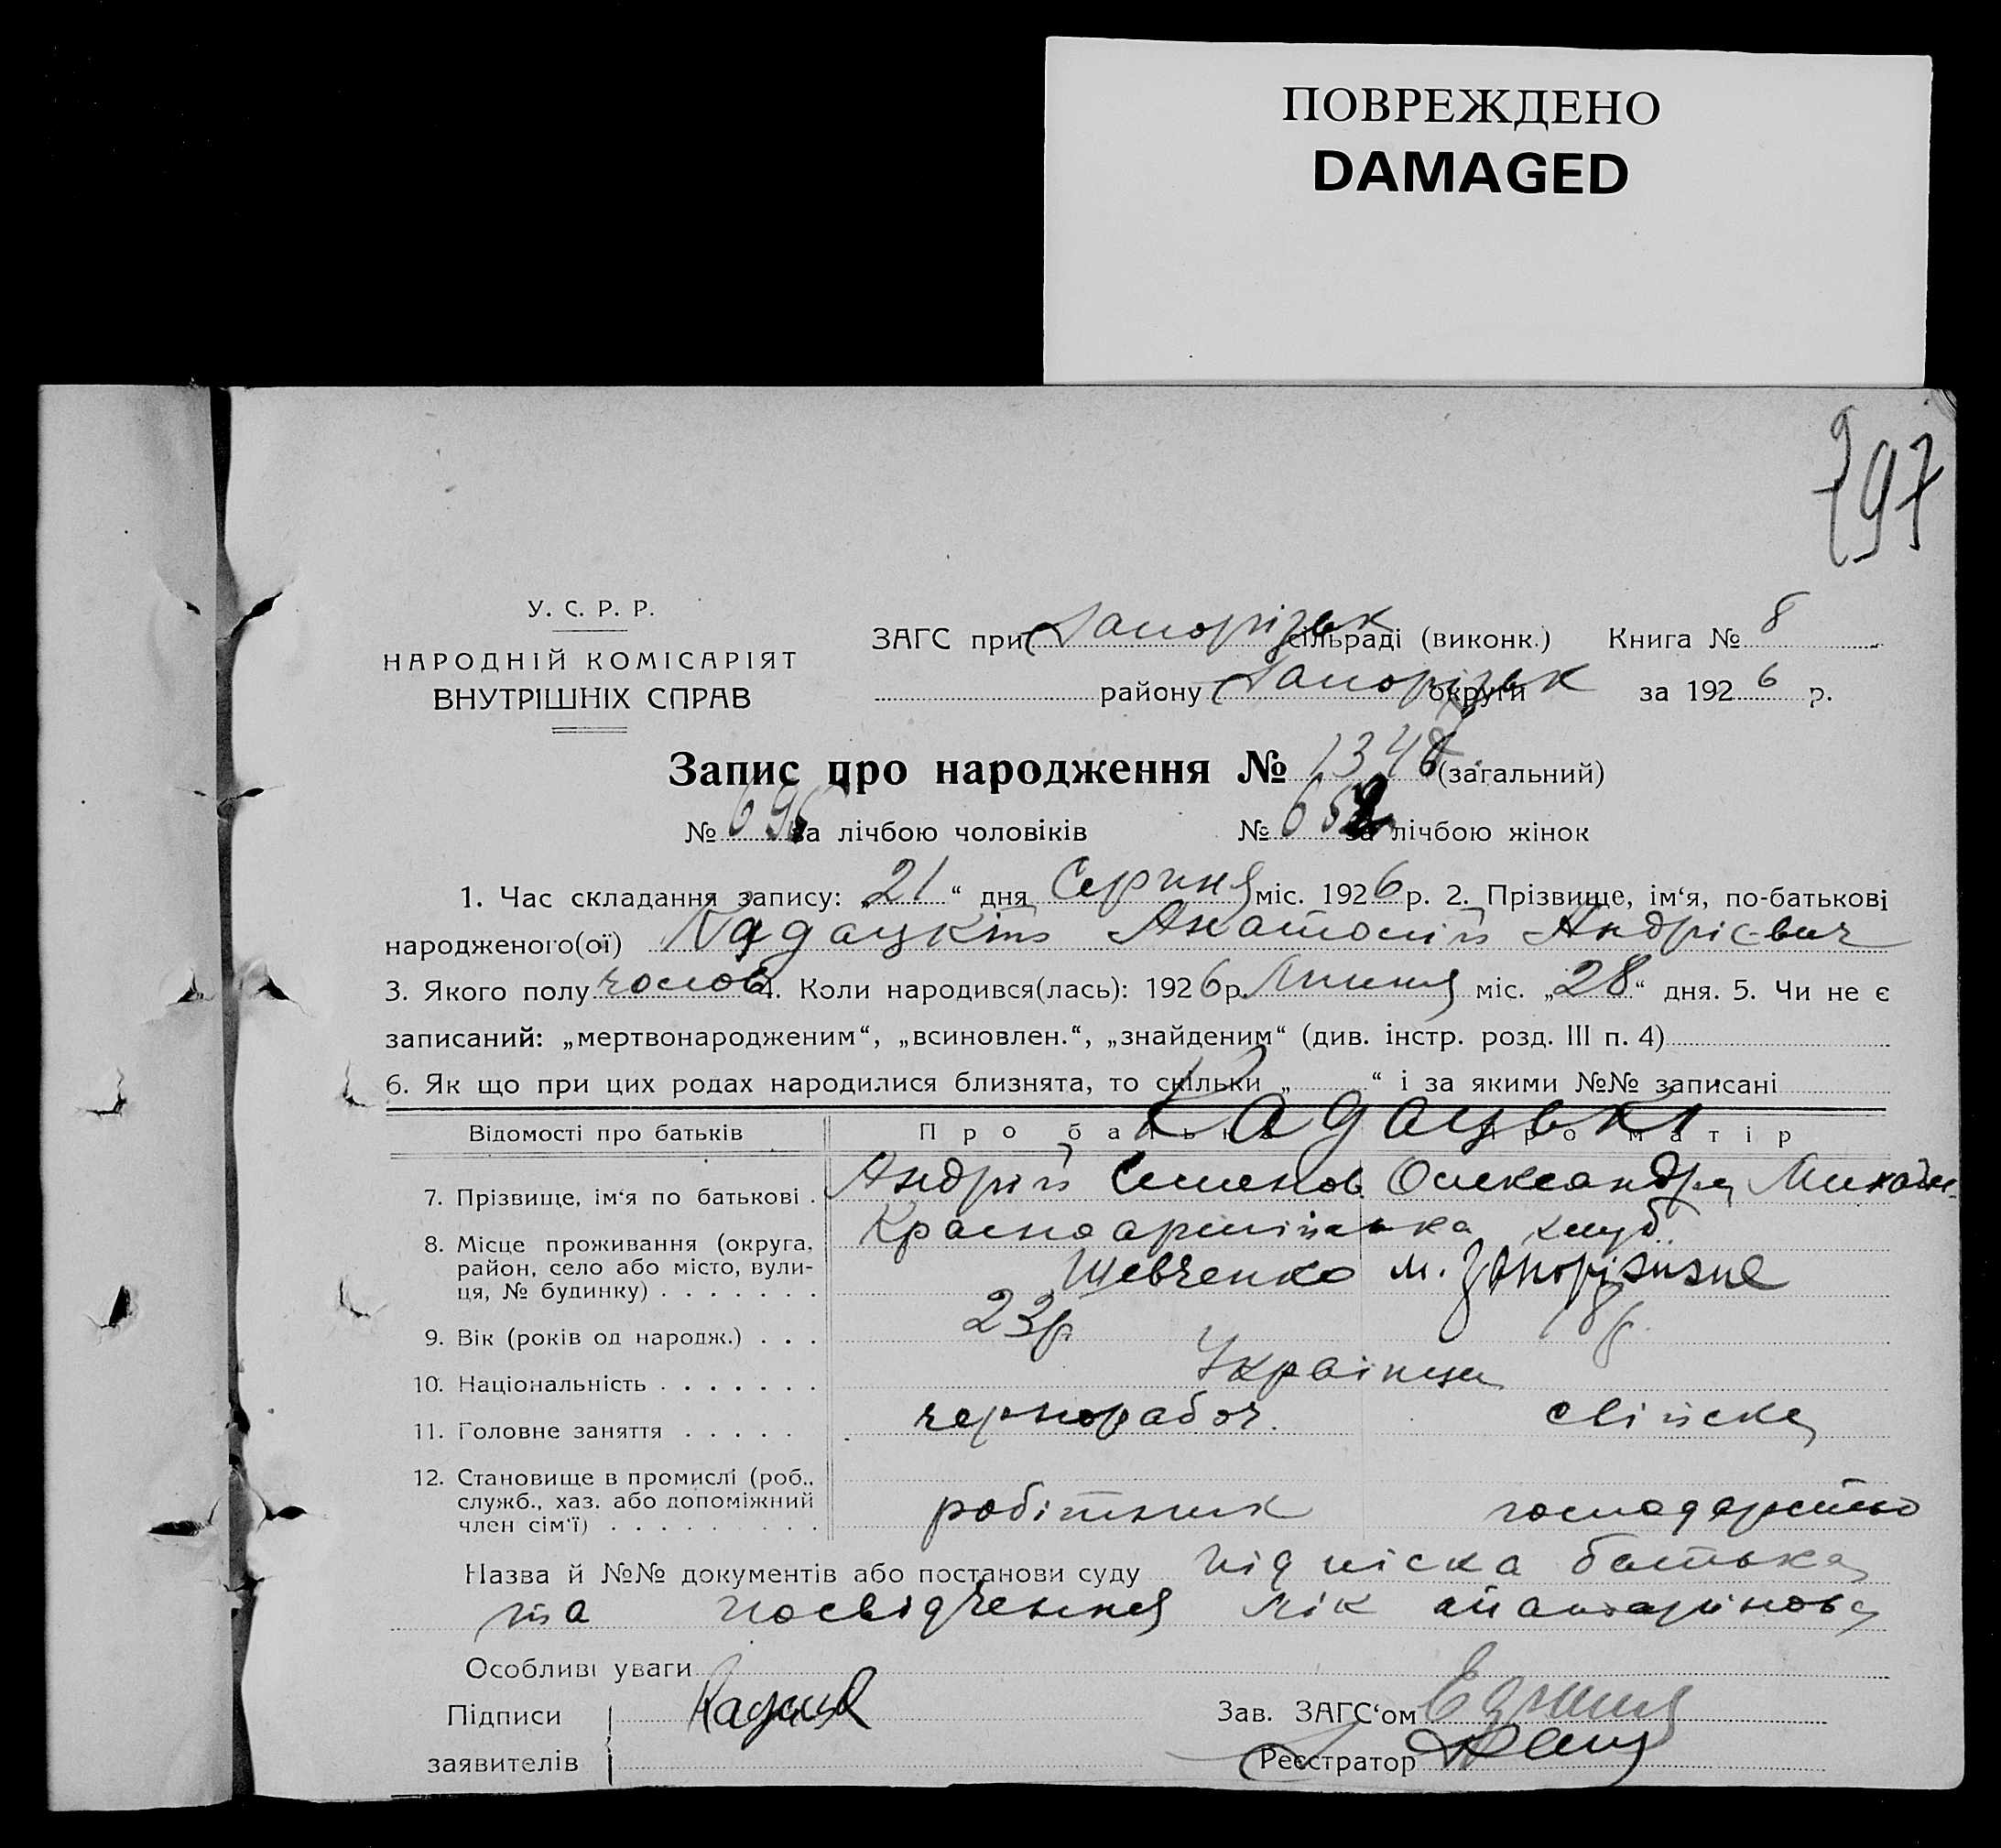 ПОВРЕЖДЕНО
DAMAGED
297
У. С. Р. Р.
НАРОДНІЙ КОМІСАРІЯТ
ВНУТРІШНІХ СПРАВ
ЗАГС при Запорізьк сільраді (виконк.) Книга № 8
району Запорізьк округи за 1926 р.
Запис про народження № 1347 (загальний)
№ 695 за лічбою чоловіків № 652 за лічбою жінок
1. Час складання запису: „21“ дня Серпня міс. 1926 р. 2. Прізвище, ім‘я, по-батькові
народженого(ої) Кадацкій Анатолій Андрієвич
3. Якого полу чолов 4. Коли народився(лась): 1926 р. Липня міс. „28“ дня. 5. Чи не є
записаний: „мертвонародженим“, „всиновлен.“, „знайденим“ (див. інстр. розд. III п. 4)
6. Як що при цих родах народилися близнята, то скільки „ “ і за якими №№ записані
Відомості про батьків Про батька Про матір
Кадацькі
7. Прізвище, ім‘я по батькові . Андрій Семенов Олександра Михайл.
8. Місце проживання (округа, район, село або місто, вули-ця, № будинку) . . . . . . . Красноармійська клуб.
Шевченко м. Запоріжжє
9. Вік (років од народж.) . . . 23р 18р.
10. Національність . . . . . . . Українци
11. Головне заняття . . . . . чернорабоч. свійске
12. Становище в промислі (роб., служб., хаз. або допоміжний член сім‘ї) . . . . . . . . . робітник господарство
Назва й №№ документів або постанови суду підписка батька
та посвідчення лік
Особливі уваги
Підписи заявителів Кадацк
Зав. ЗАГС‘ом
Реєстратор